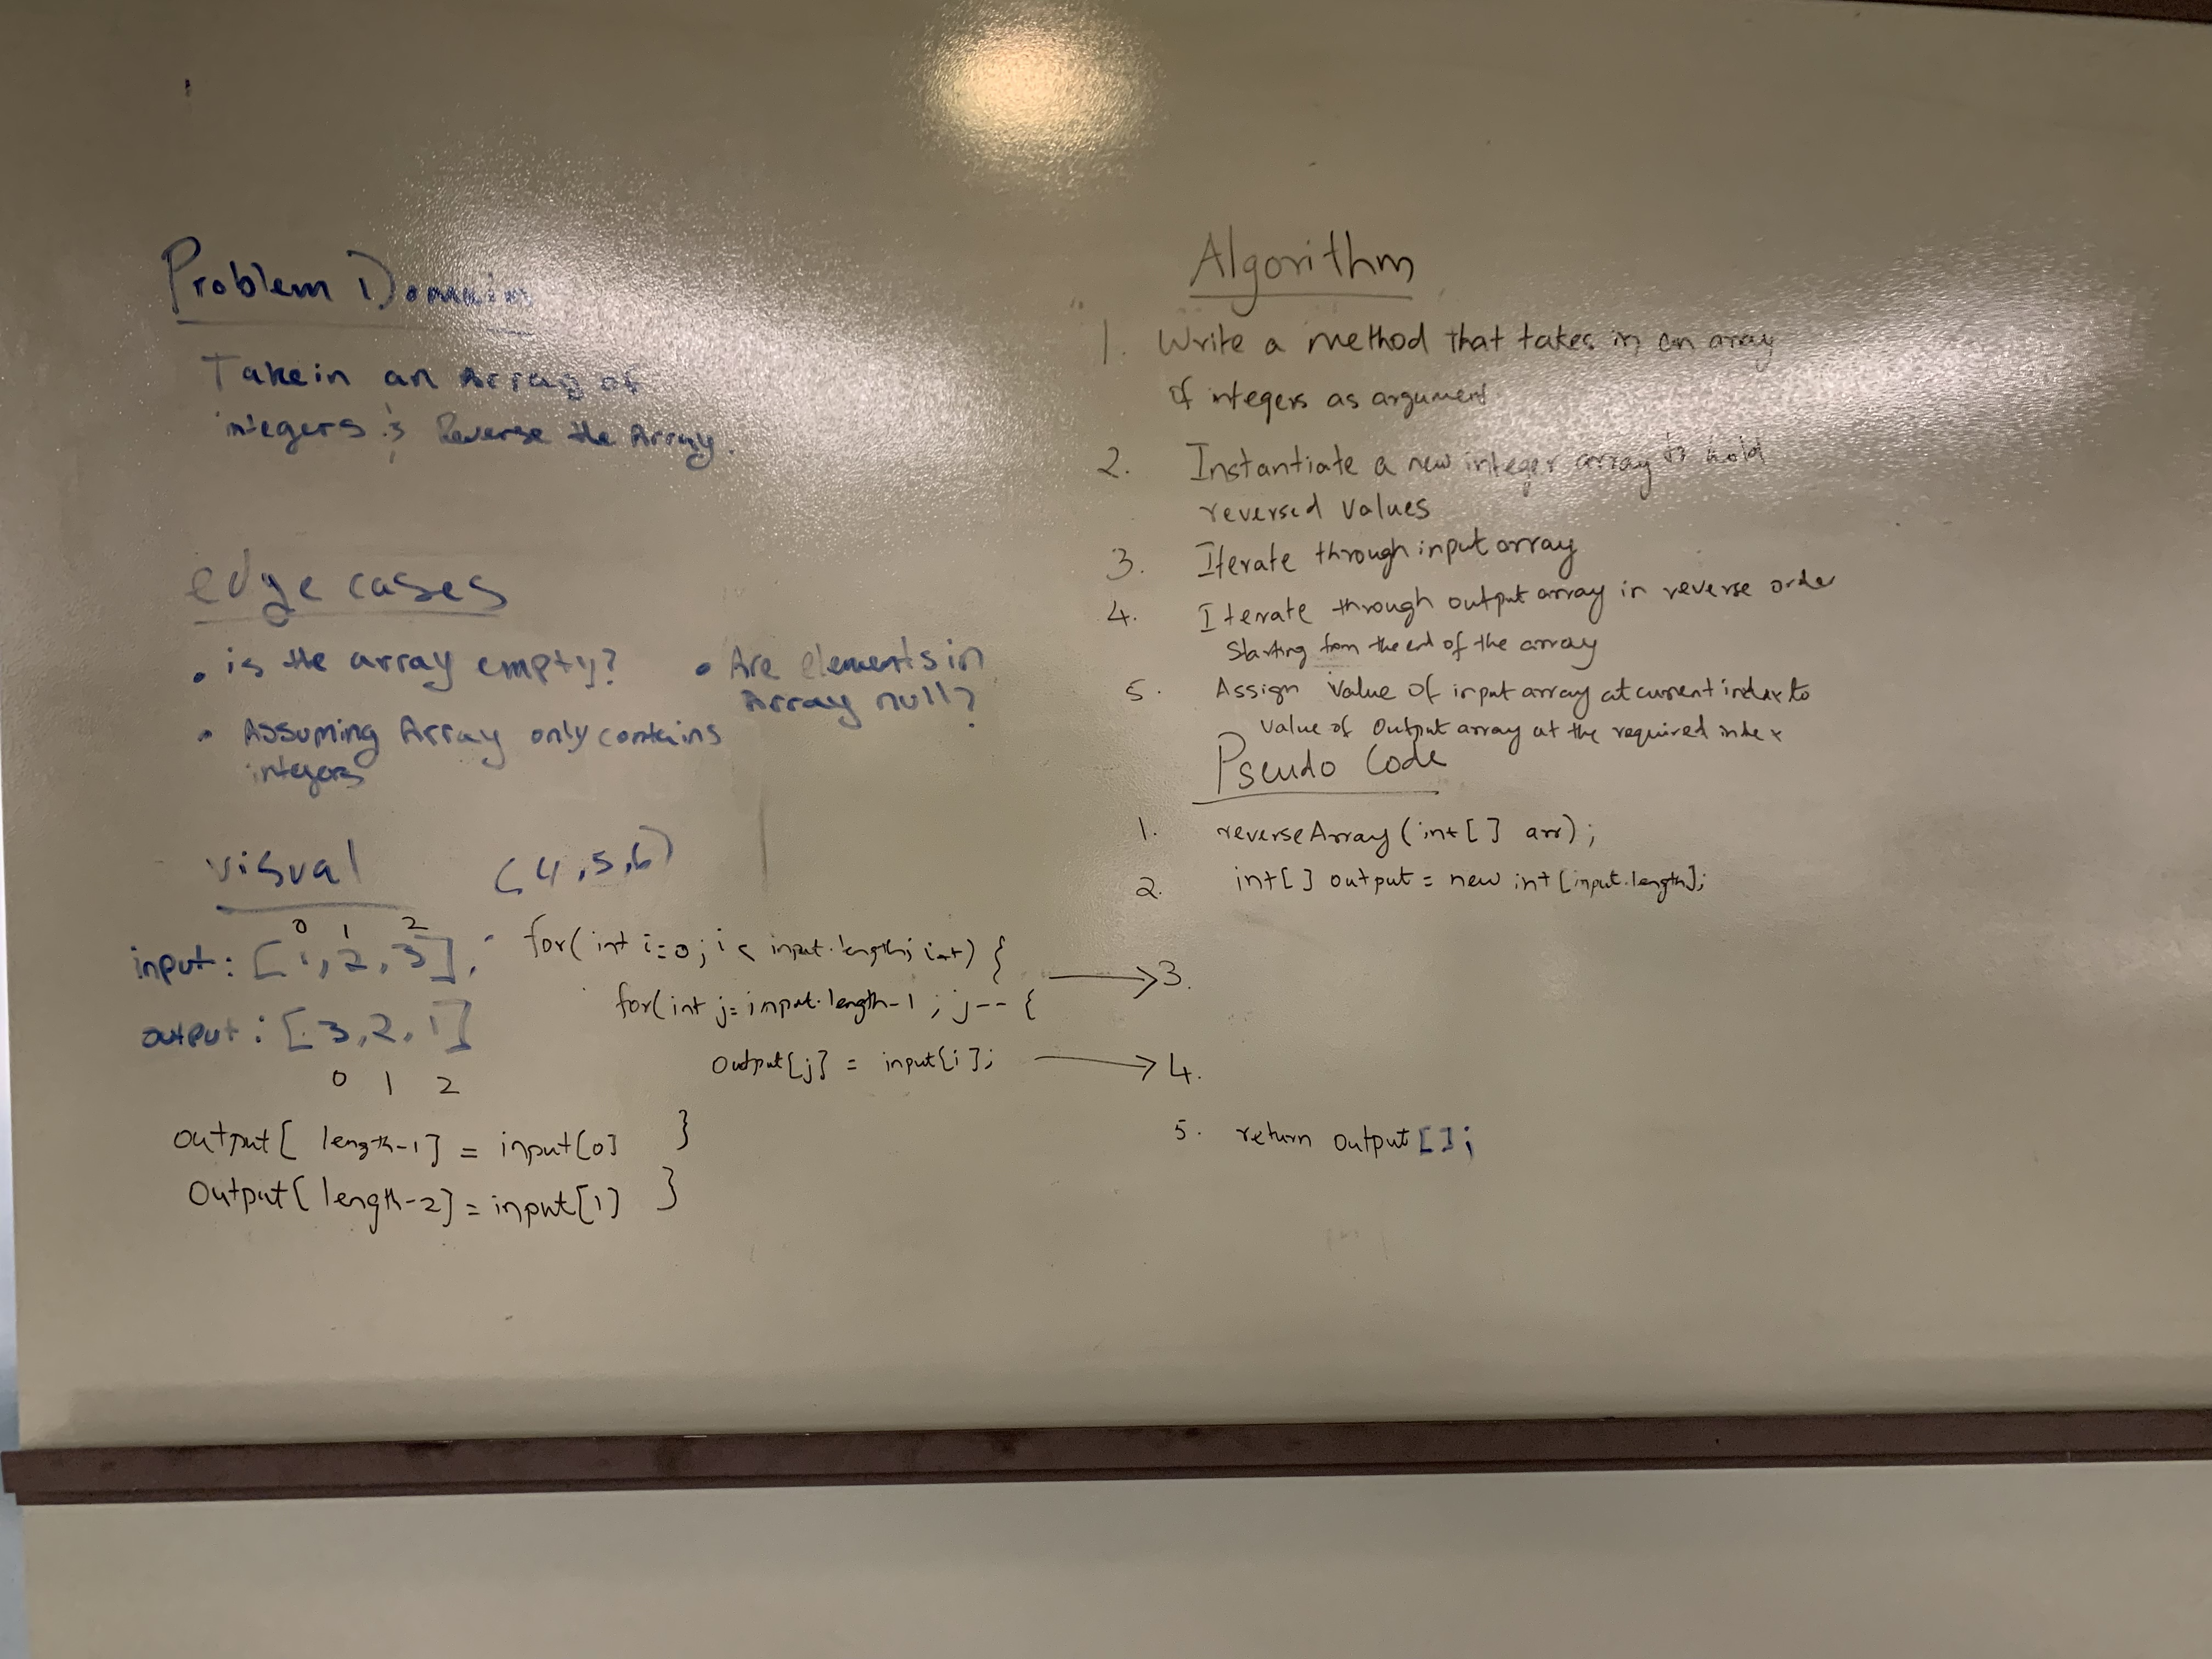 Problem Domain
Take in an Array of
integers & Reverse the Array.
edge cases
• is the array empty?
• Assuming Array only contains
integers
• Are elements in
Array null?
visual
(4,5,6)
0 1 2
input: [1,2,3],
output: [3,2,1]
0 1 2
output[length-1] = input[0]
Output[length-2] = input[1]
for(int i=0; i < input.length; i++) {
for(int j=input.length-1; j-- {
Output[j] = input[i];
}
}
Algorithm
1. Write a method that takes in an array
of integers as argument
2. Instantiate a new integer array to hold
reversed values
3. Iterate through input array
4. Iterate through output array in reverse order
Starting from the end of the array
5. Assign value of input array at current index to
value of output array at the required index
Pseudo Code
1. reverseArray(int[] arr);
2. int[] output = new int[input.length];
→ 3.
→ 4.
5. return output[];